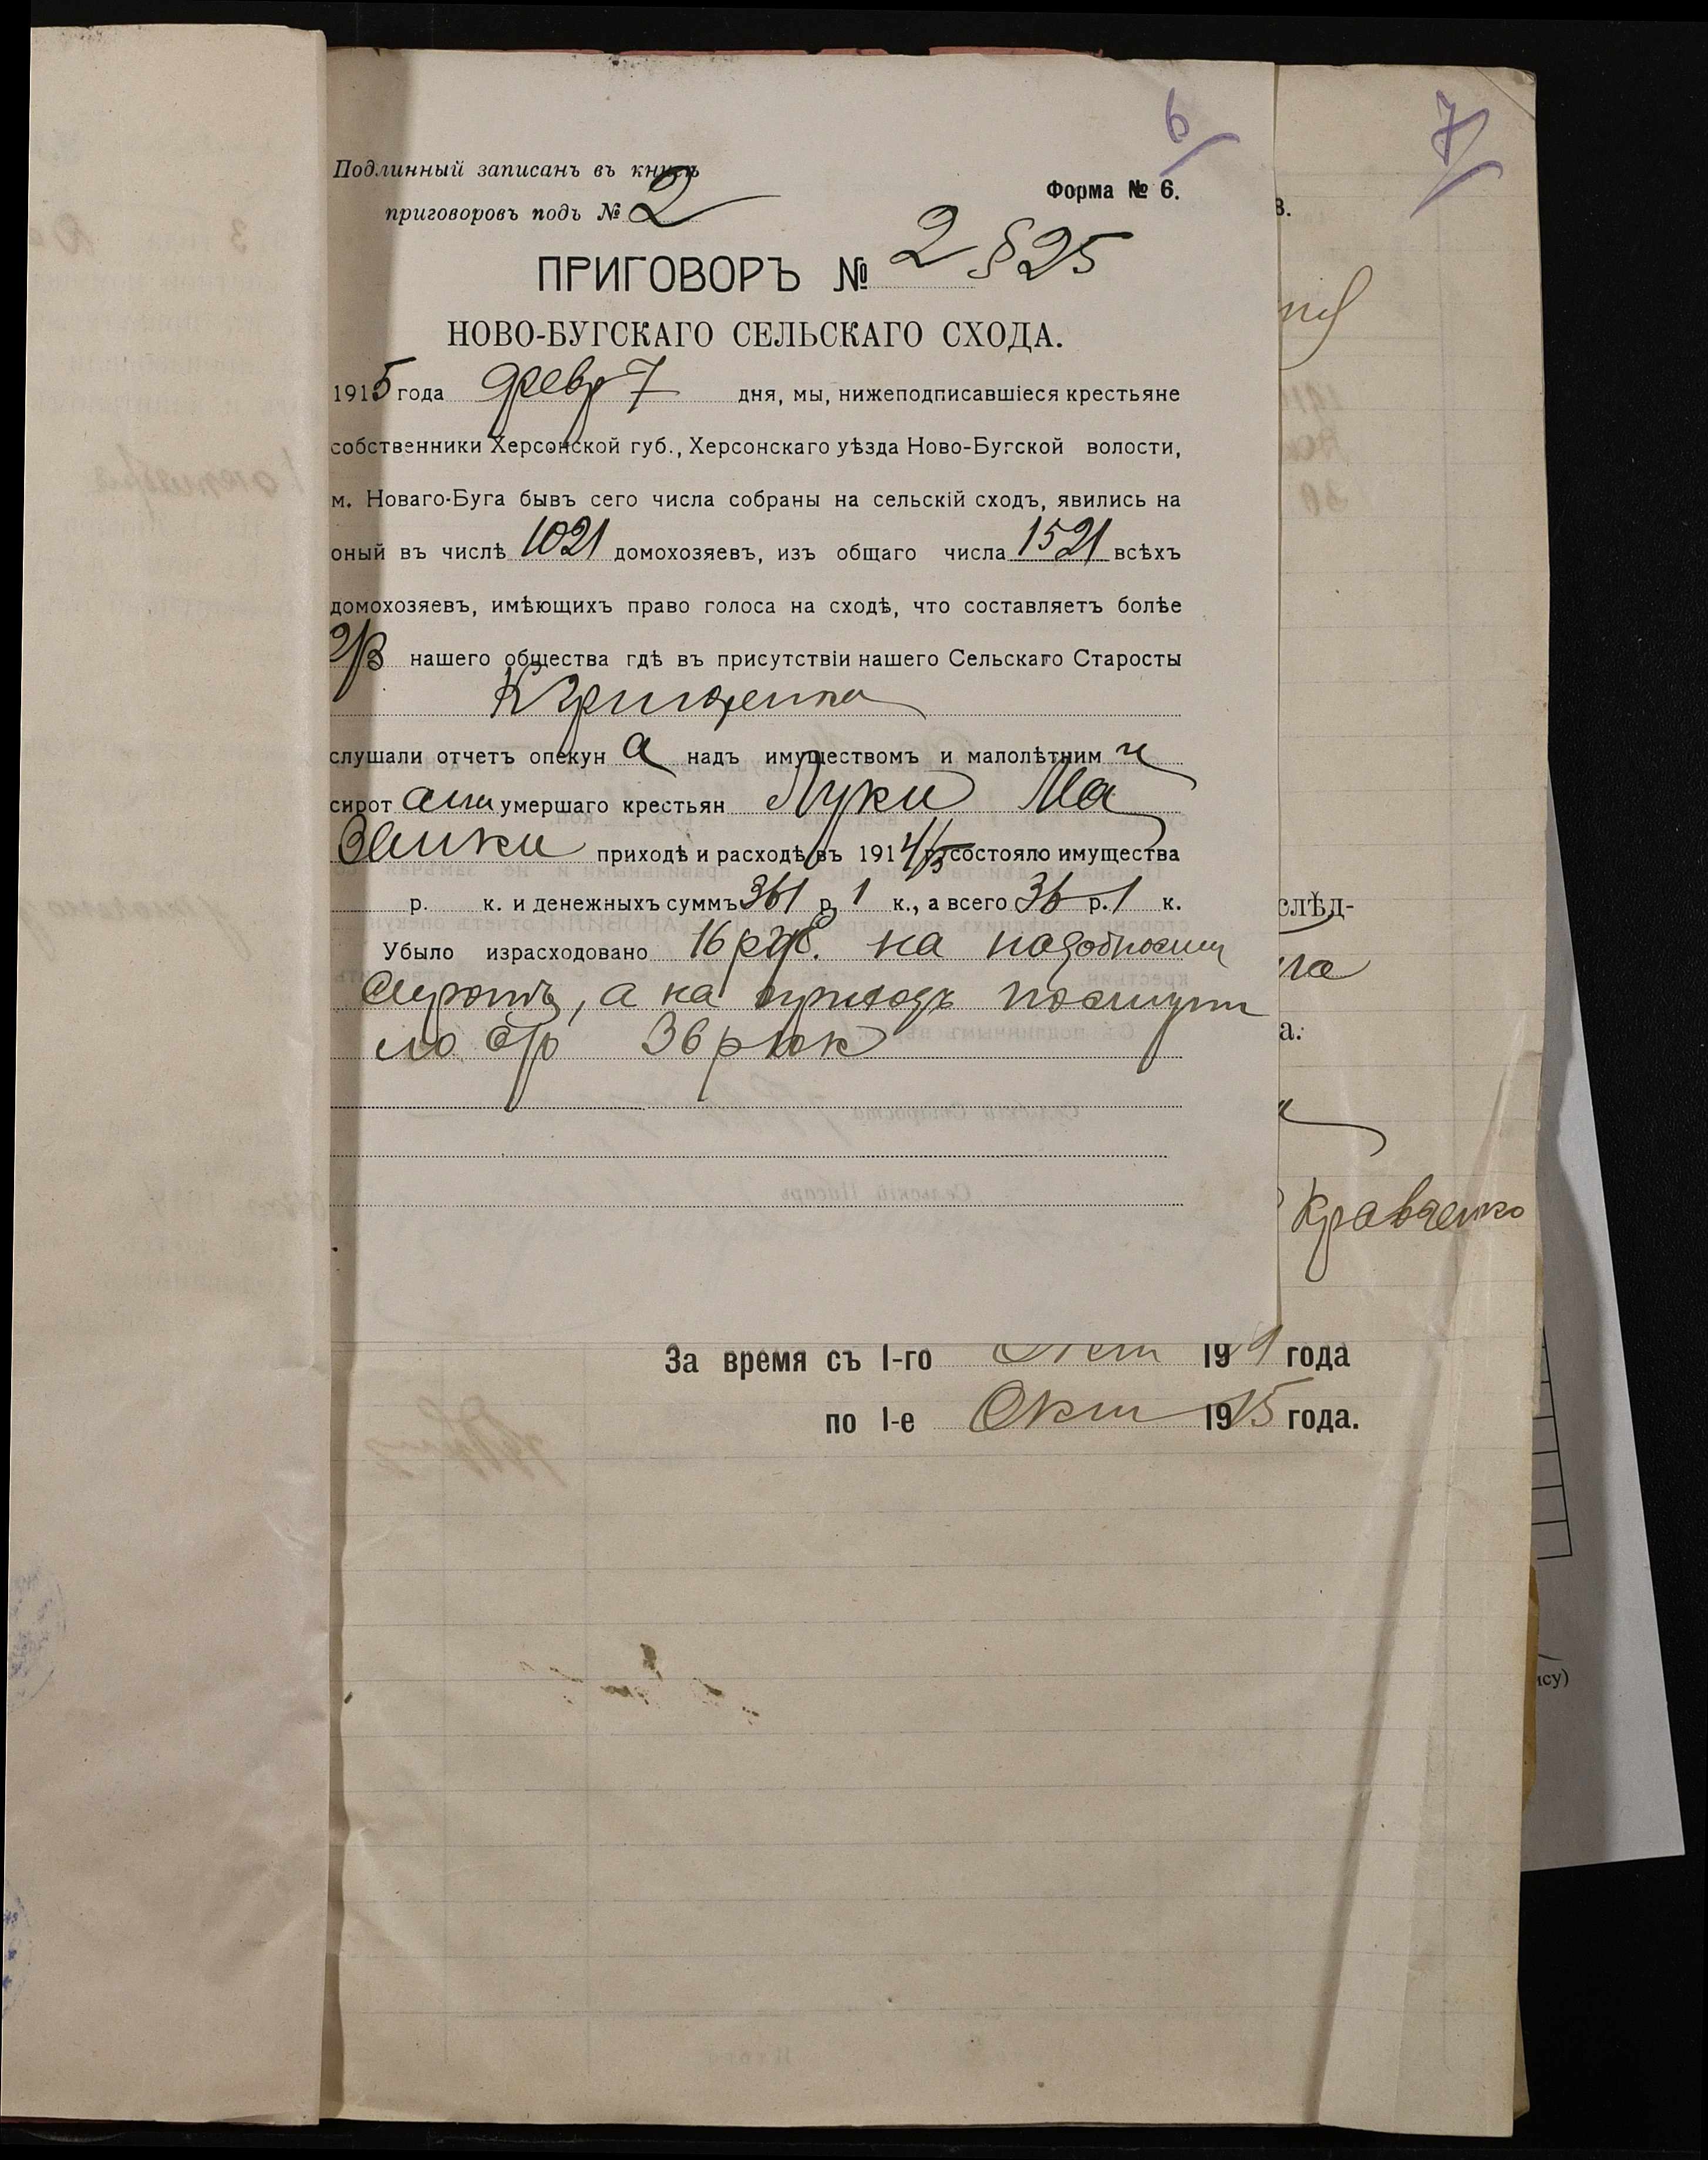 6
7
Подлинный записанъ въ книгѣ
Форма № 6.
приговоровъ подъ № 2
ПРИГОВОРЪ № 2 § 25
НОВО-БУГСКАГО СЕЛЬСКАГО СХОДА.
1915 года февр 7 дня, мы, нижеподписавшіеся крестьяне
собственники Херсонской губ., Херсонскаго уѣзда Ново-Бугской волости,
м. Новаго-Буга бывъ сего числа собраны на сельскій сходъ, явились на
оный въ числѣ 1021 домохозяевъ, изъ общаго числа 1521 всѣхъ
домохозяевъ, имѣющихъ право голоса на сходѣ, что составляетъ болѣе
2/3 нашего общества гдѣ въ присутствіи нашего Сельскаго Старосты
слушали отчетъ опекун а надъ имуществомъ и малолѣтним и
сирот ами умершаго крестьян Луки Ма
заики приходѣ и расходѣ въ 1914/5 г. состояло имущества
р. к. и денежныхъ суммъ 361 р. 1 к., а всего 36 р. 1 к.
Убыло израсходовано 16 руб. на надобности
сиротъ, а на приходъ поступи
ло 36 р 1 к
слѣд-
га
а.
Кравченко
За время съ 1-го Окт 19 года
по 1-е Окт 1915 года.
ісу)